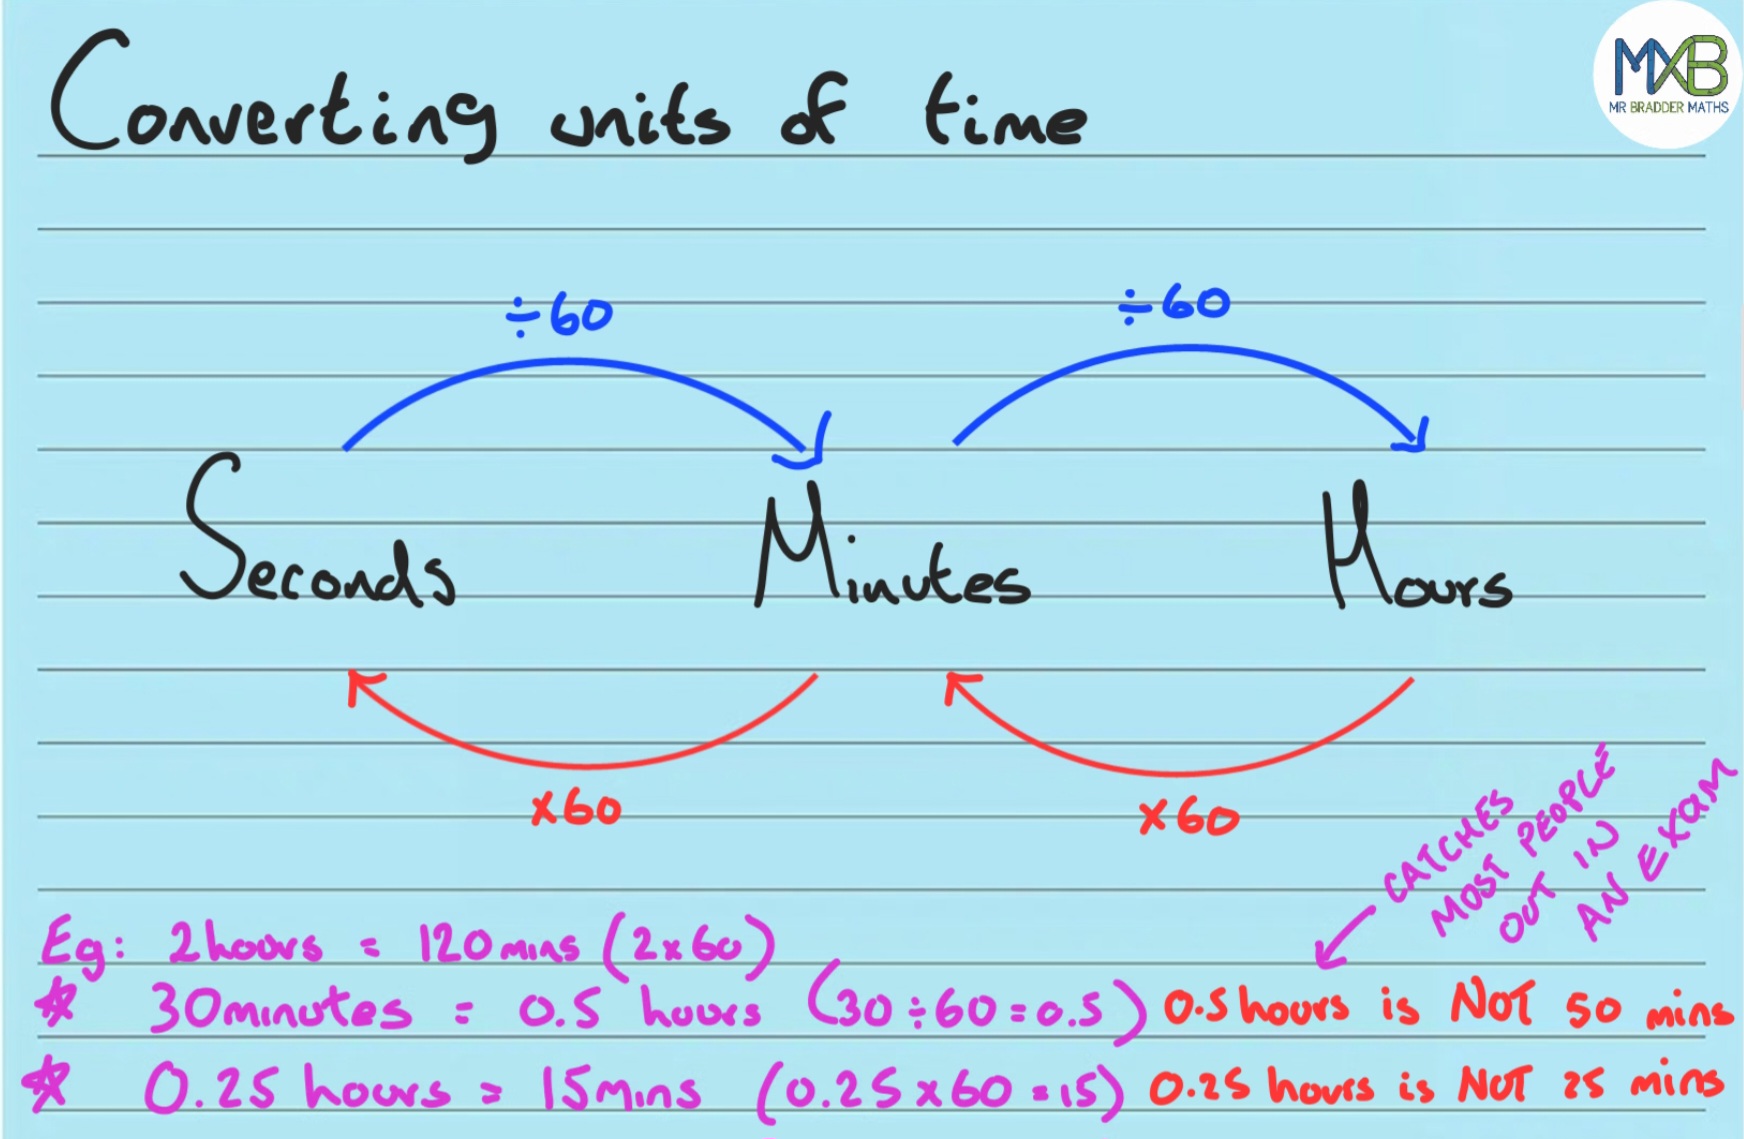 Converting units of time
MXB
MR BRADDER MATHS
÷60
÷60
Seconds Minutes Hours
x60
x60
CATCHES
MOST PEOPLE
OUT IN
AN EXAM
Eg: 2hours = 120mins (2x60)
* 30minutes = 0.5 hours (30÷60=0.5) 0.5hours is NOT 50 mins
* 0.25 hours = 15mins (0.25x60=15) 0.25 hours is NOT 25 mins